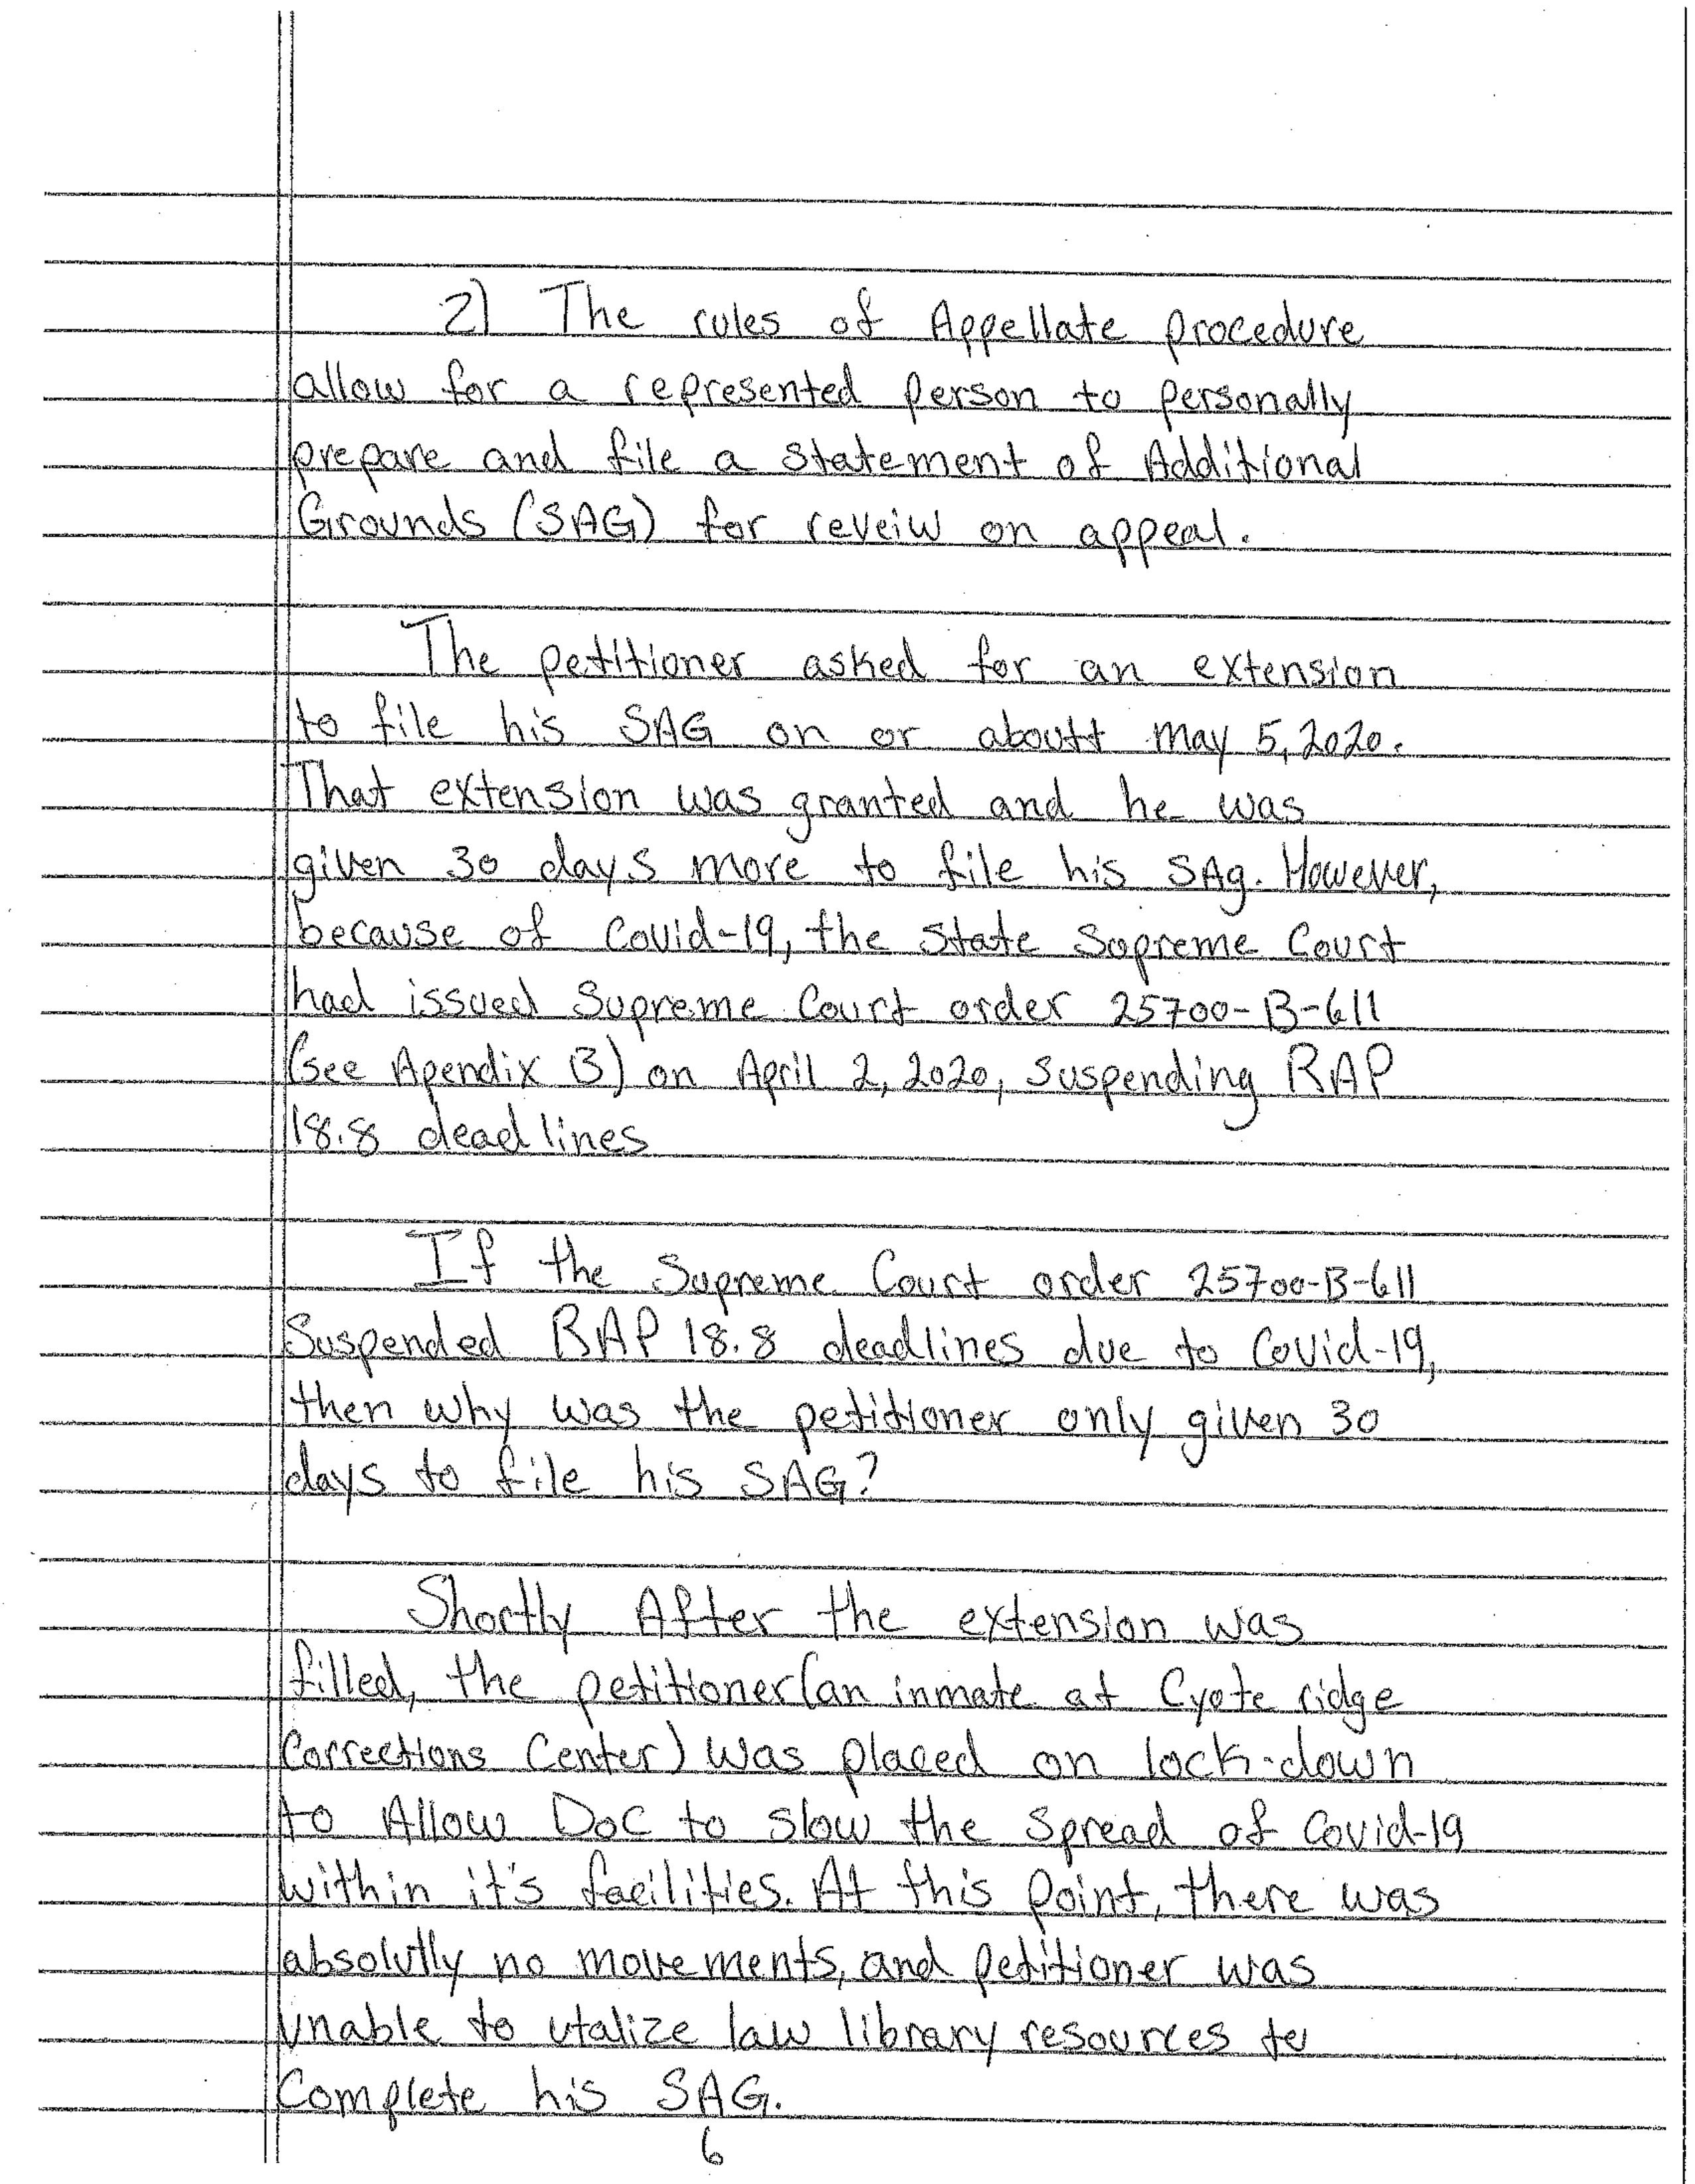 2) The rules of Appellate procedure
allow for a represented person to personally
prepare and file a statement of Additional
Grounds (SAG) for reveiw on appeal.
The petitioner asked for an extension
to file his SAG on or aboutt may 5, 2020.
That extension was granted and he was
given 30 days more to file his SAg. However,
because of Covid-19, the State Supreme Court
had issued Supreme Court order 25700-B-611
(see Apendix B) on April 2, 2020, suspending RAP
18.8 deadlines
If the Supreme Court order 25700-B-611
Suspended RAP 18.8 deadlines due to Covid-19,
then why was the petitioner only given 30
days to file his SAG?
Shortly After the extension was
filled, the petitioner (an inmate at Cyote ridge
Corrections Center) was placed on lock-down
to Allow DOC to slow the spread of Covid-19
within it's facilities. At this point, there was
absolutly no movements, and petitioner was
unable to utalize law library resources to
Complete his SAG.
6